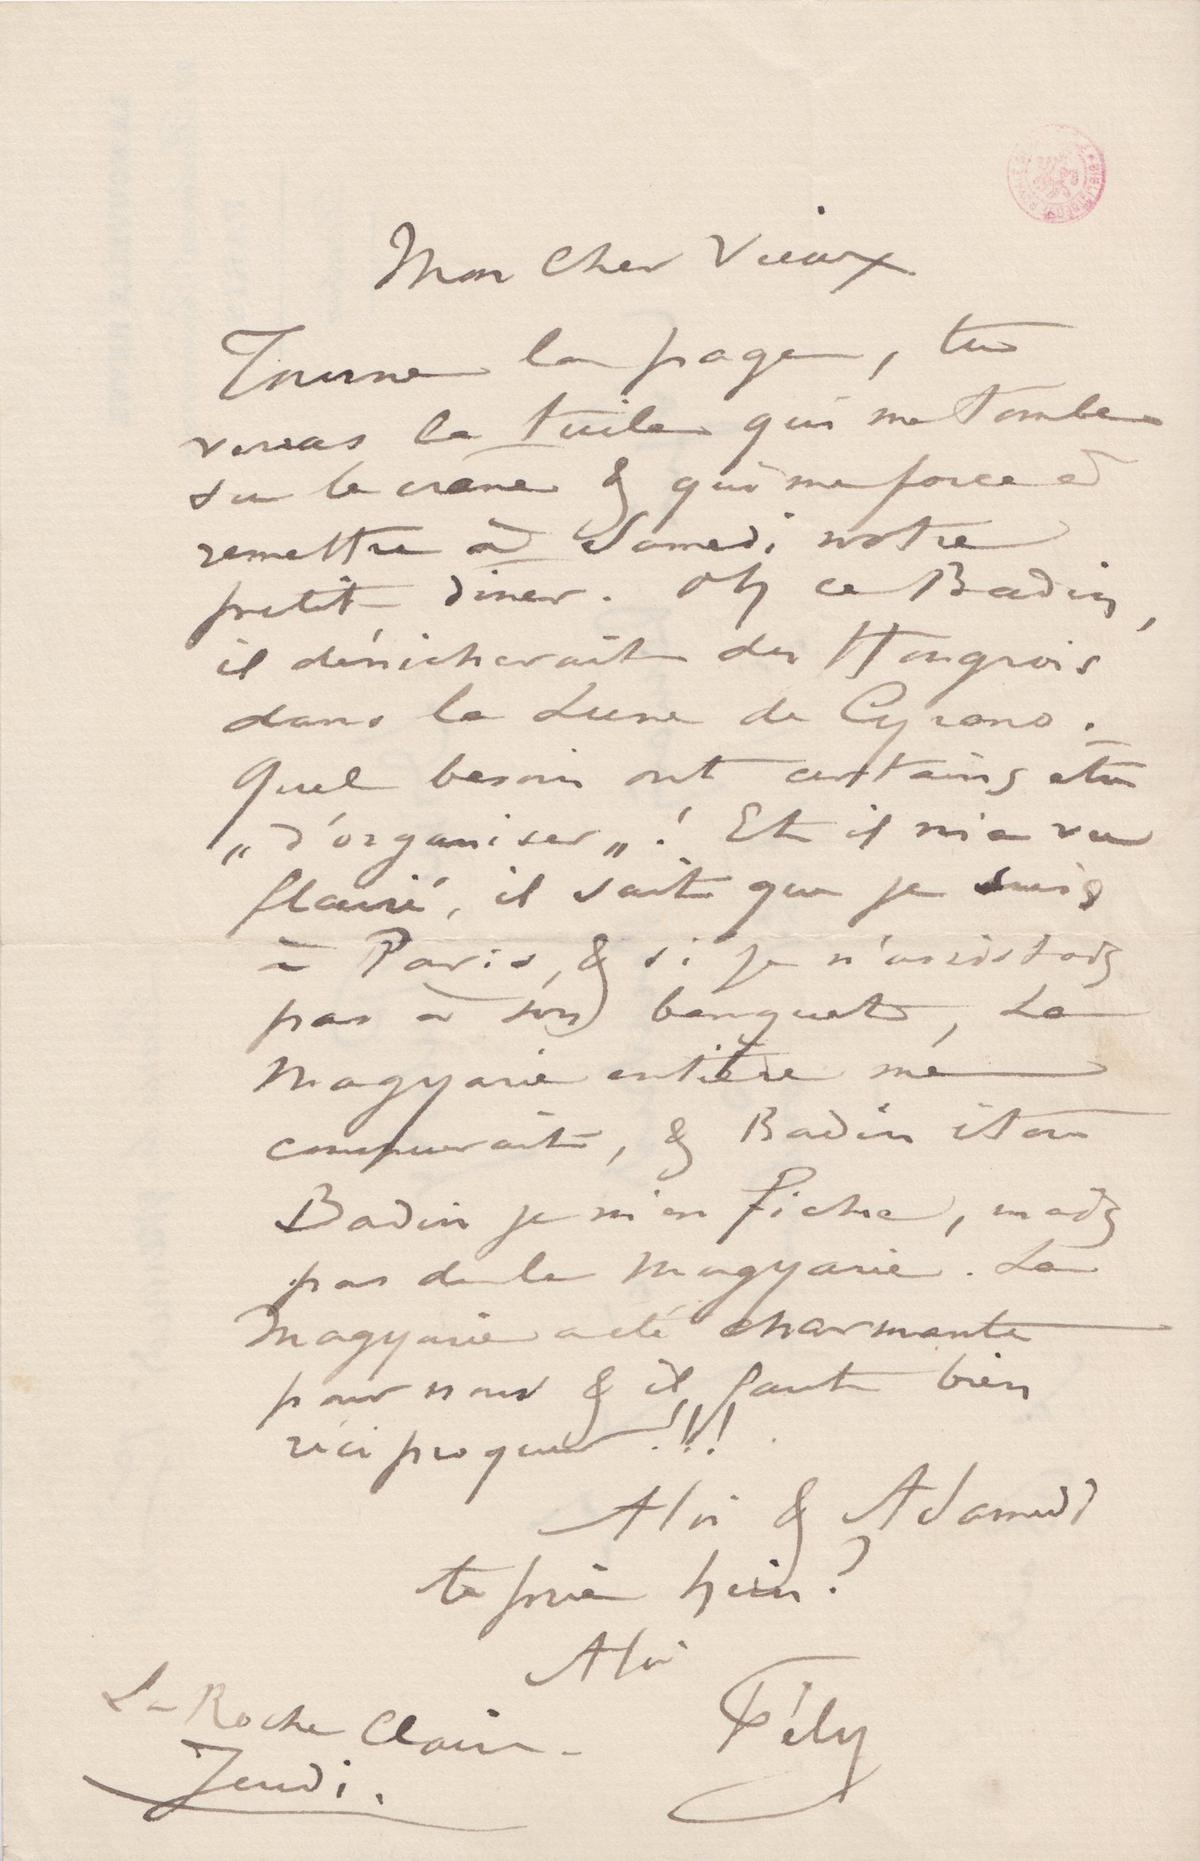 Mon Cher Vieux
Tourne la page, tu
verras la tuile qui me tombe
sur le crâne & qui me force à
remettre à Samedi notre
petit diner. Oh ce Badin,
il dénicherait des Hongrois
dans la Lune de Cyrano.
Quel besoin ont certains etres
„d'organiser„! Et il m'a vu
flairé, il sait que je suis
à Paris, & si je n'assistais
pas à son banquet, La
Magyarie entière me
conspuerait, & Badin itou
Badin je m'en fiche, mais
pas de la Magyarie. La
Magyarie a été charmante
pour nous & il faut bien
réciproquer!!!
A toi & A Samedi
te prie hein?
A toi
Fély
La Roche Claire.
Jeudi.